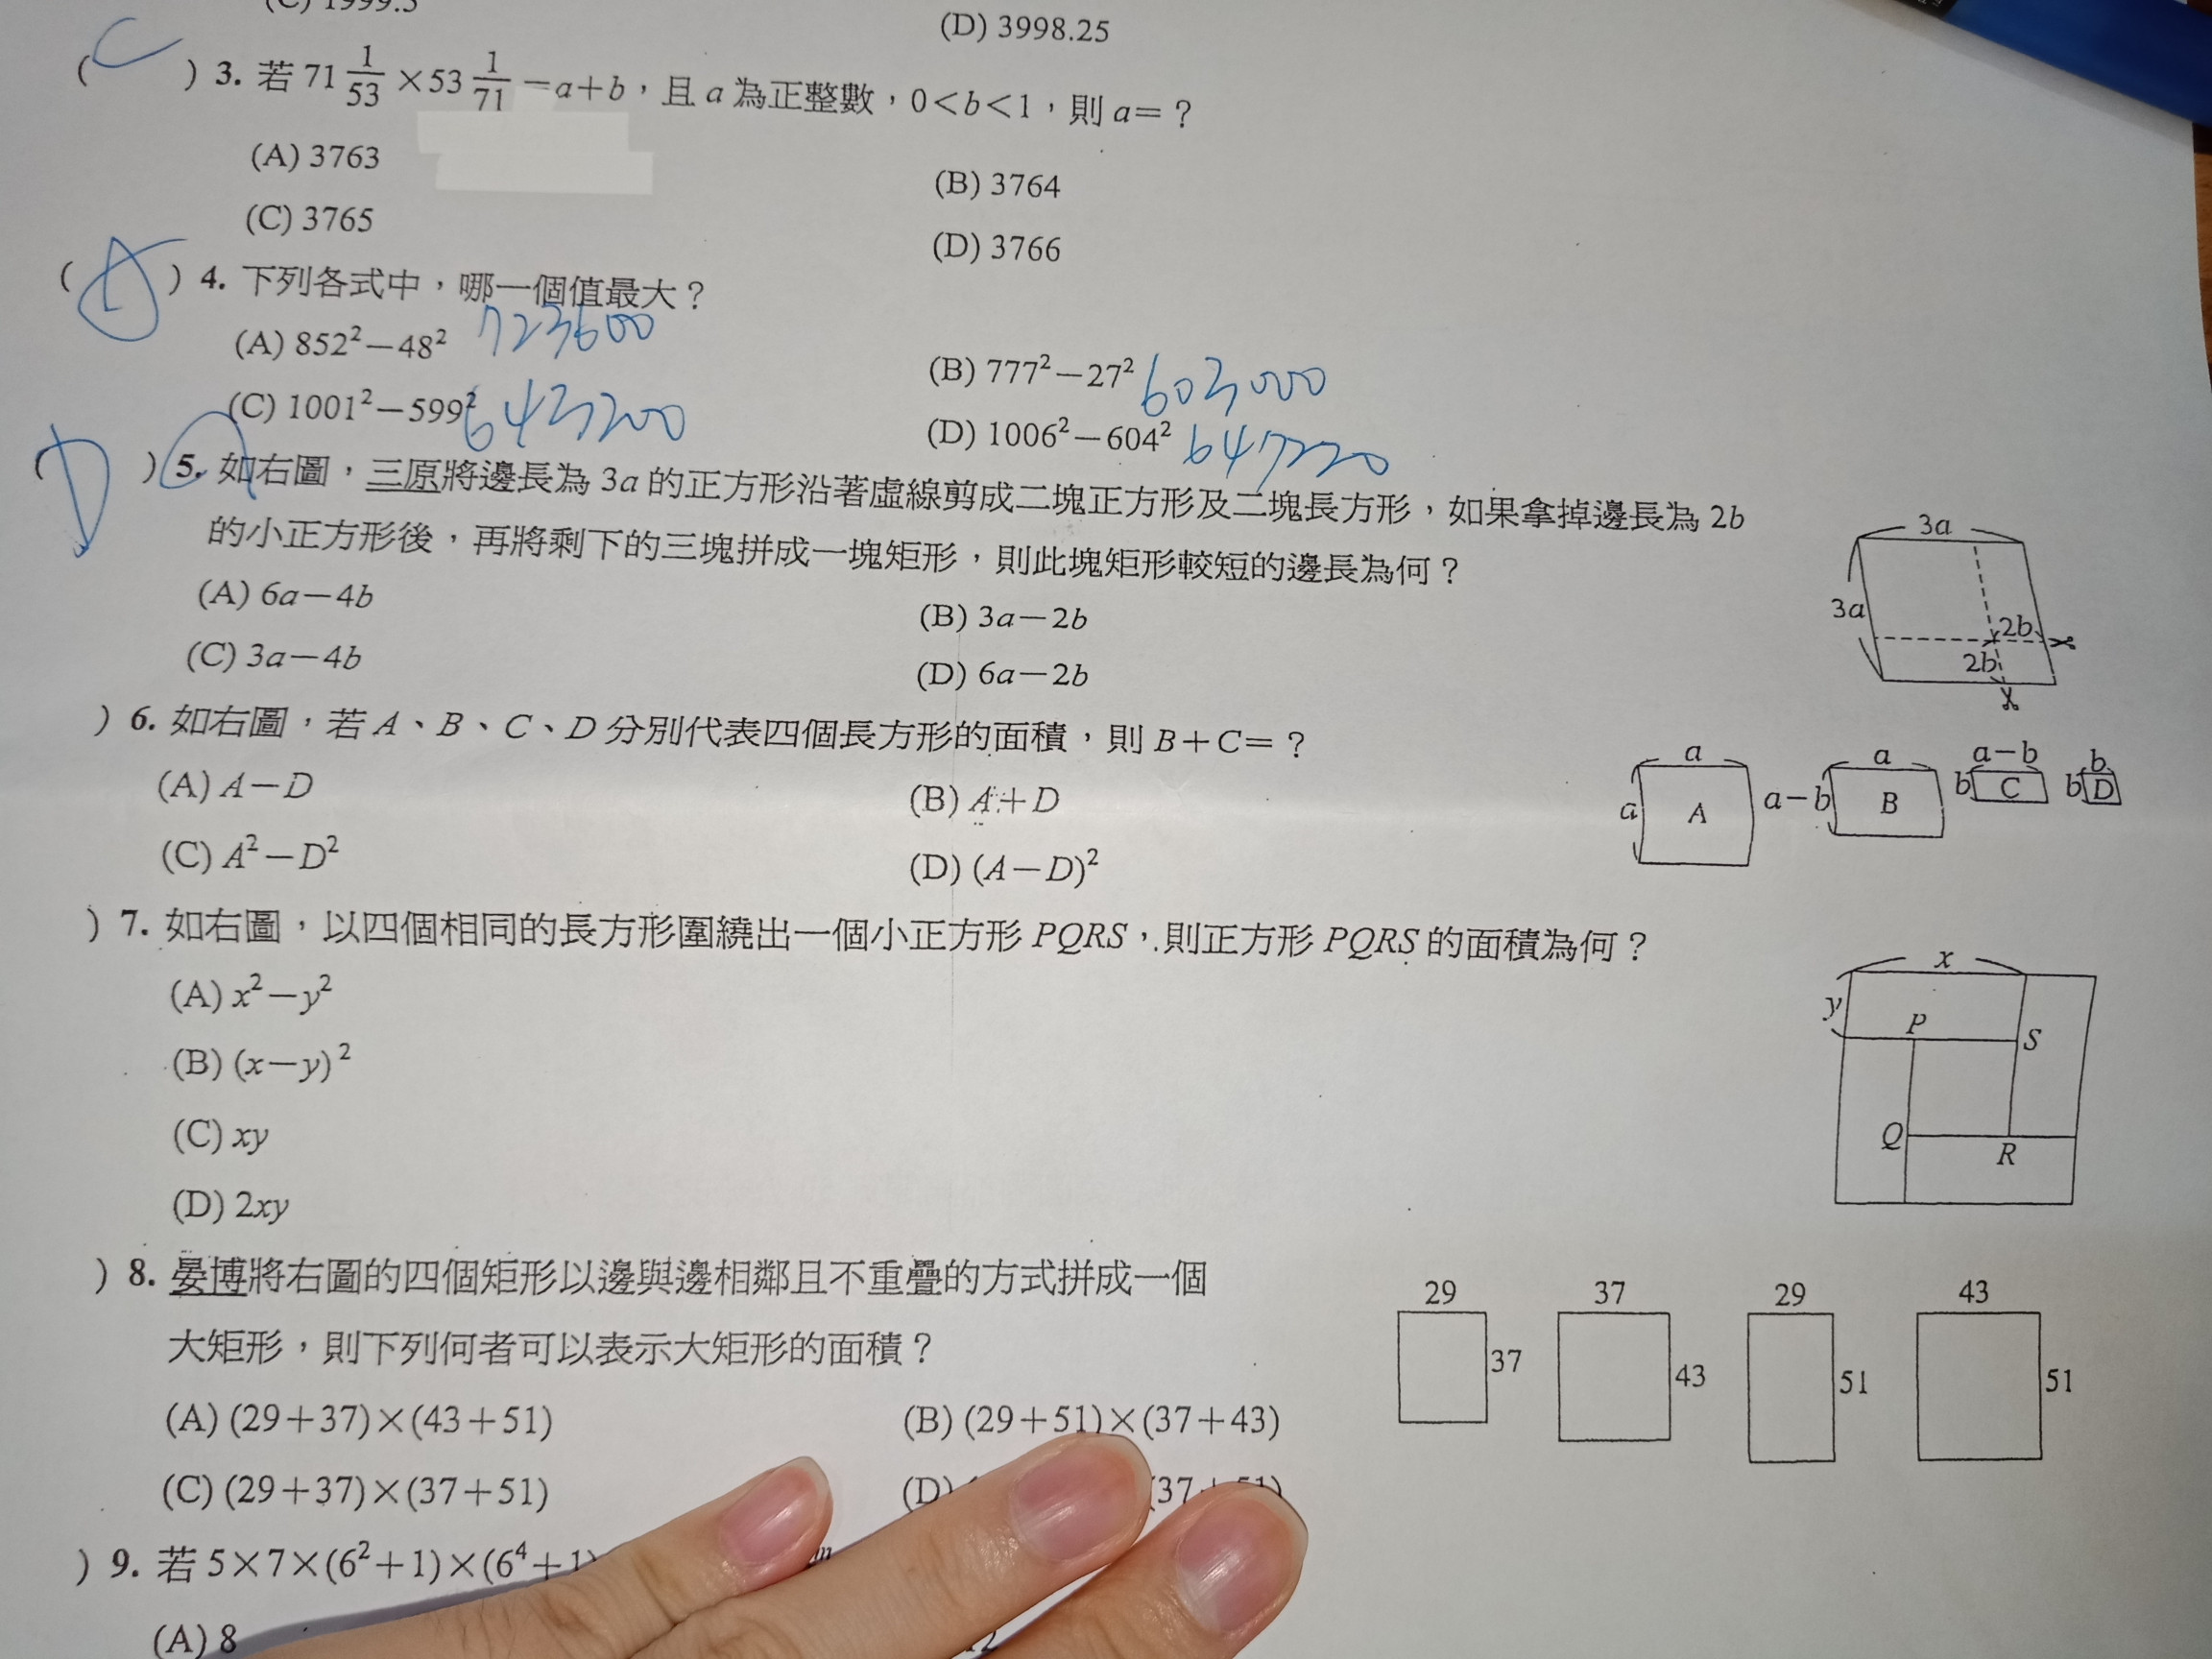 (C) 1999.5
(D) 3998.25
( C ) 3. 若 71 1/53 ×53 1/71 =a+b，且 a 為正整數，0<b<1，則 a=？
(A) 3763
(B) 3764
(C) 3765
(D) 3766
( A ) 4. 下列各式中，哪一個值最大？
(A) 852²−48² 723600
(B) 777²−27² 603000
(C) 1001²−599² 643200
(D) 1006²−604² 647220
( D ) 5. 如右圖，三原將邊長為 3a 的正方形沿著虛線剪成二塊正方形及二塊長方形，如果拿掉邊長為 2b
的小正方形後，再將剩下的三塊拼成一塊矩形，則此塊矩形較短的邊長為何？
(A) 6a−4b
(B) 3a−2b
(C) 3a−4b
(D) 6a−2b
3a
3a
2b
2b
) 6. 如右圖，若 A、B、C、D 分別代表四個長方形的面積，則 B+C=？
(A) A−D
(B) A+D
(C) A²−D²
(D) (A−D)²
a a a−b b
a A a−b B b C b D
) 7. 如右圖，以四個相同的長方形圍繞出一個小正方形 PQRS，則正方形 PQRS 的面積為何？
(A) x²−y²
(B) (x−y)²
(C) xy
(D) 2xy
x
y
P
S
Q
R
) 8. 晏博將右圖的四個矩形以邊與邊相鄰且不重疊的方式拼成一個
大矩形，則下列何者可以表示大矩形的面積？
(A) (29+37)×(43+51)
(B) (29+51)×(37+43)
(C) (29+37)×(37+51)
(D) (37+51)
29 37 29 43
37 43 51 51
) 9. 若 5×7×(6²+1)×(6⁴+1)
(A) 8